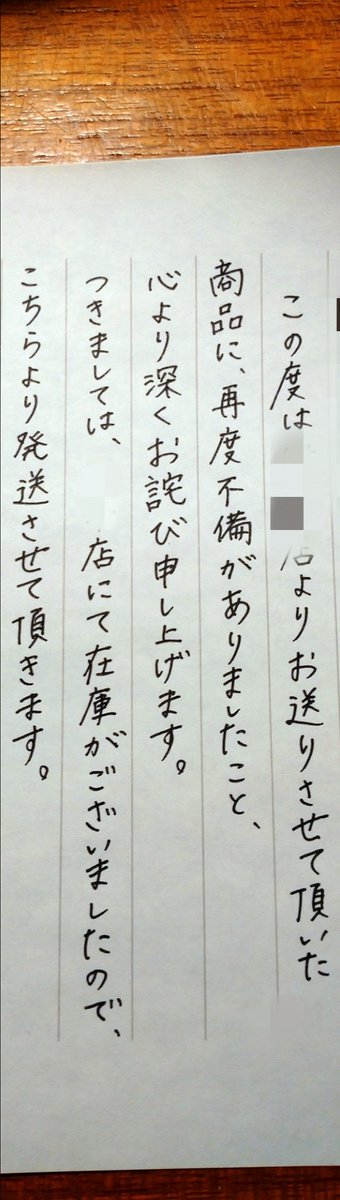 この度は
店よりお送りさせて頂いた
商品に、再度不備がありましたこと、
心より深くお詫び申し上げます。
つきましては、
店にて在庫がございましたので、
こちらより発送させて頂きます。